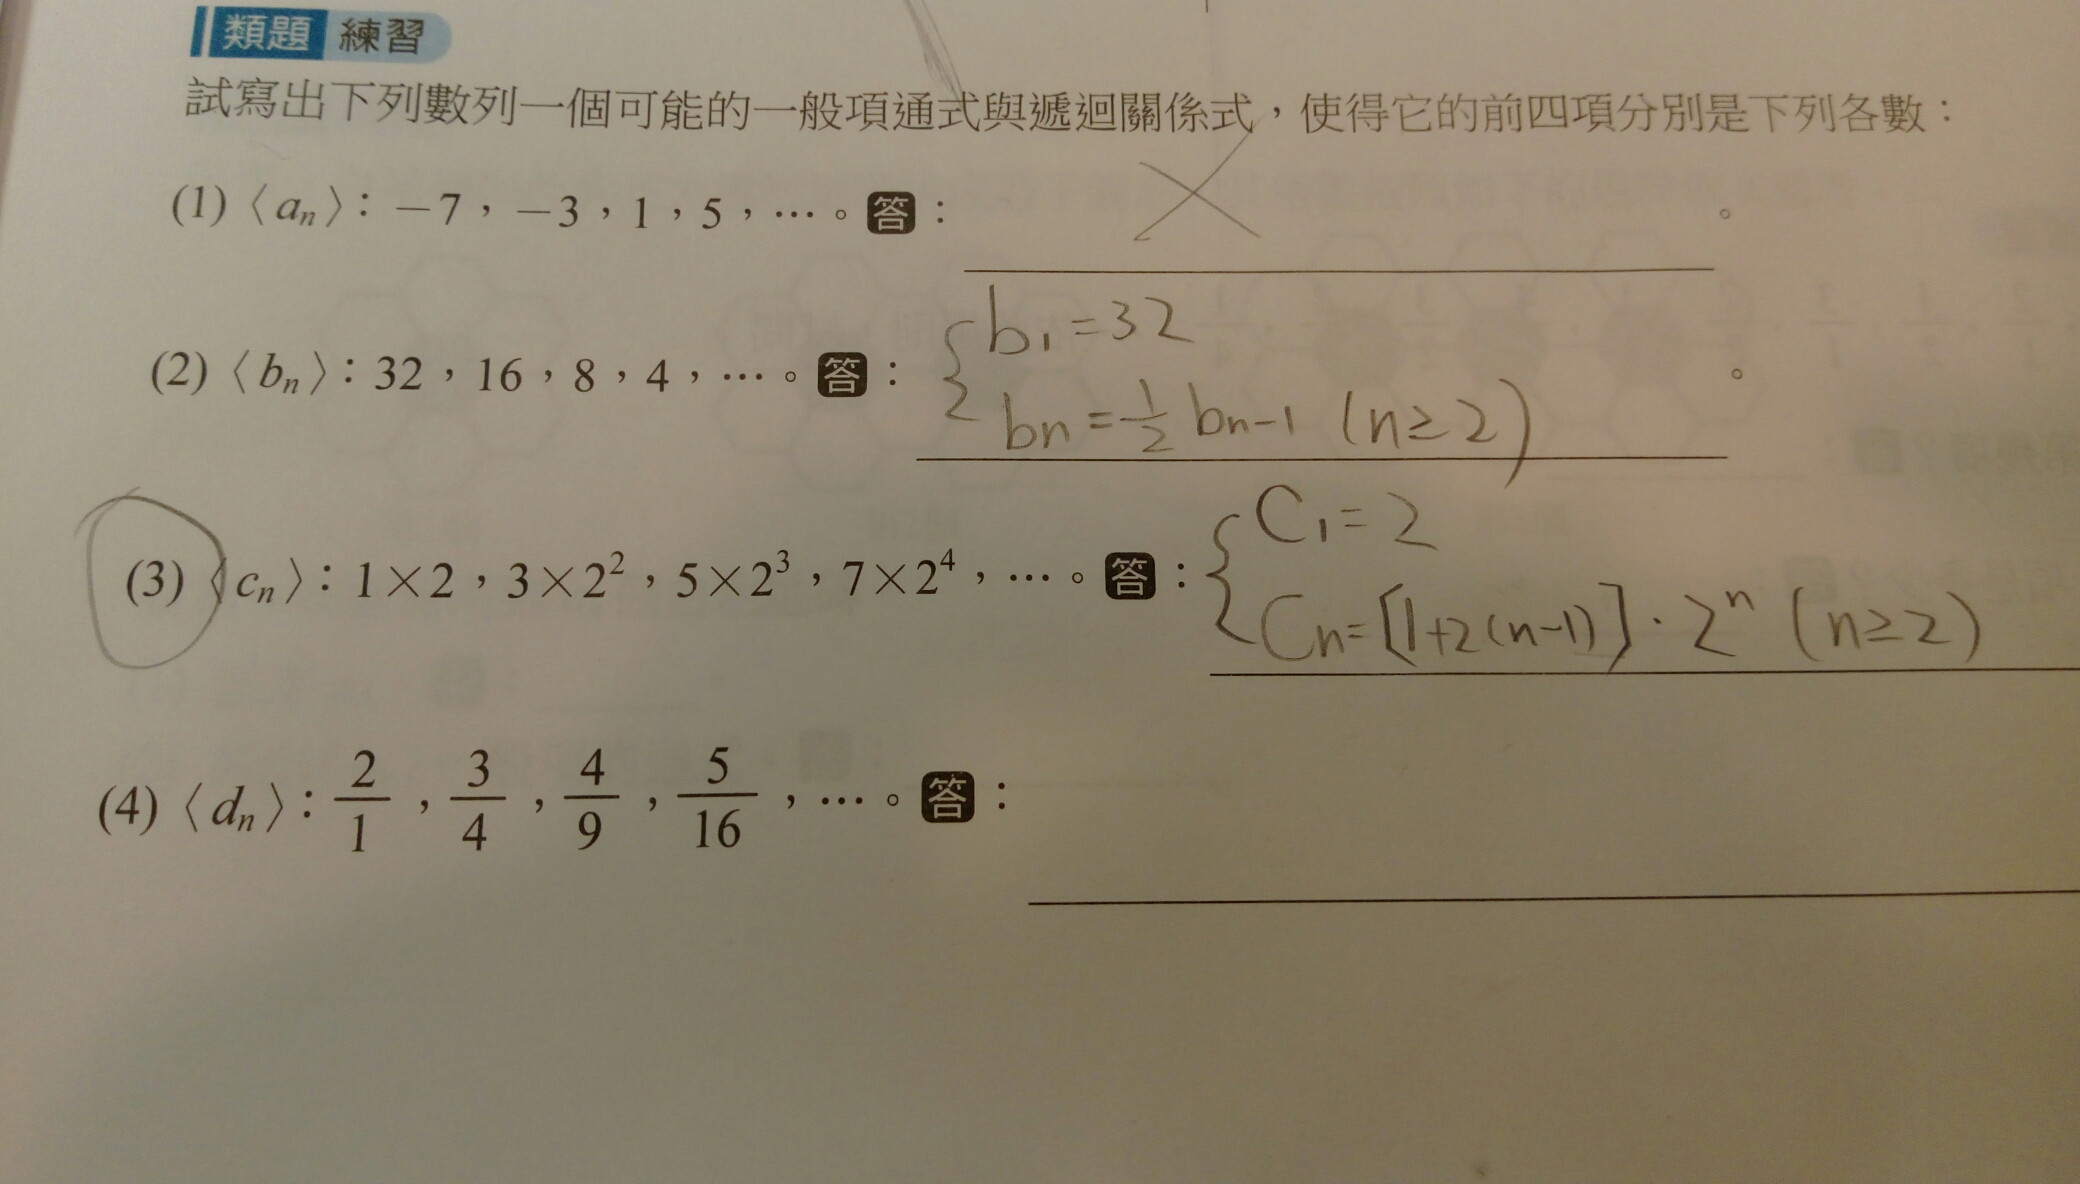 類題 練習
試寫出下列數列一個可能的一般項通式與遞迴關係式，使得它的前四項分別是下列各數：
(1)〈aₙ〉：−7，−3，1，5，…。答：　　　。
(2)〈bₙ〉：32，16，8，4，…。答：{b₁=32
bₙ=½bₙ₋₁ (n≥2)　。
(3)〈cₙ〉：1×2，3×2²，5×2³，7×2⁴，…。答：{C₁=2
Cₙ=[1+2(n-1)]·2ⁿ (n≥2)
(4)〈dₙ〉：2/1，3/4，4/9，5/16，…。答：